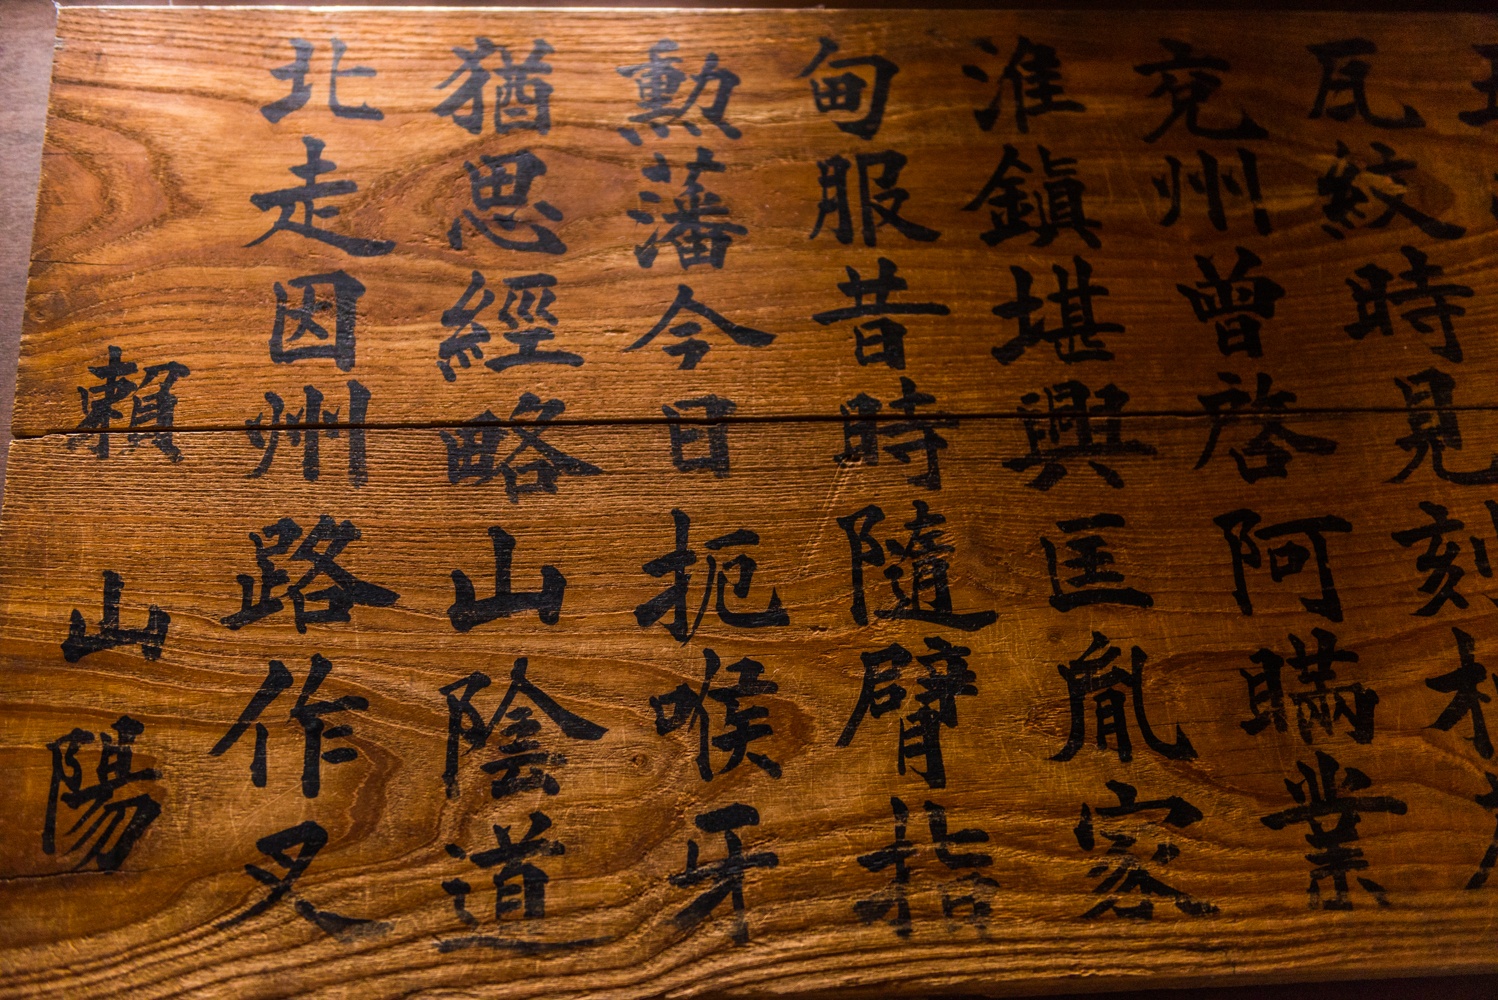 瓦紋時見刻
兗州曾啓阿瞞業
淮鎮堪興匡胤家
甸服昔時隨臂指
勲藩今日扼喉牙
猶思經略山陰道
北走因州路作叉
賴山陽